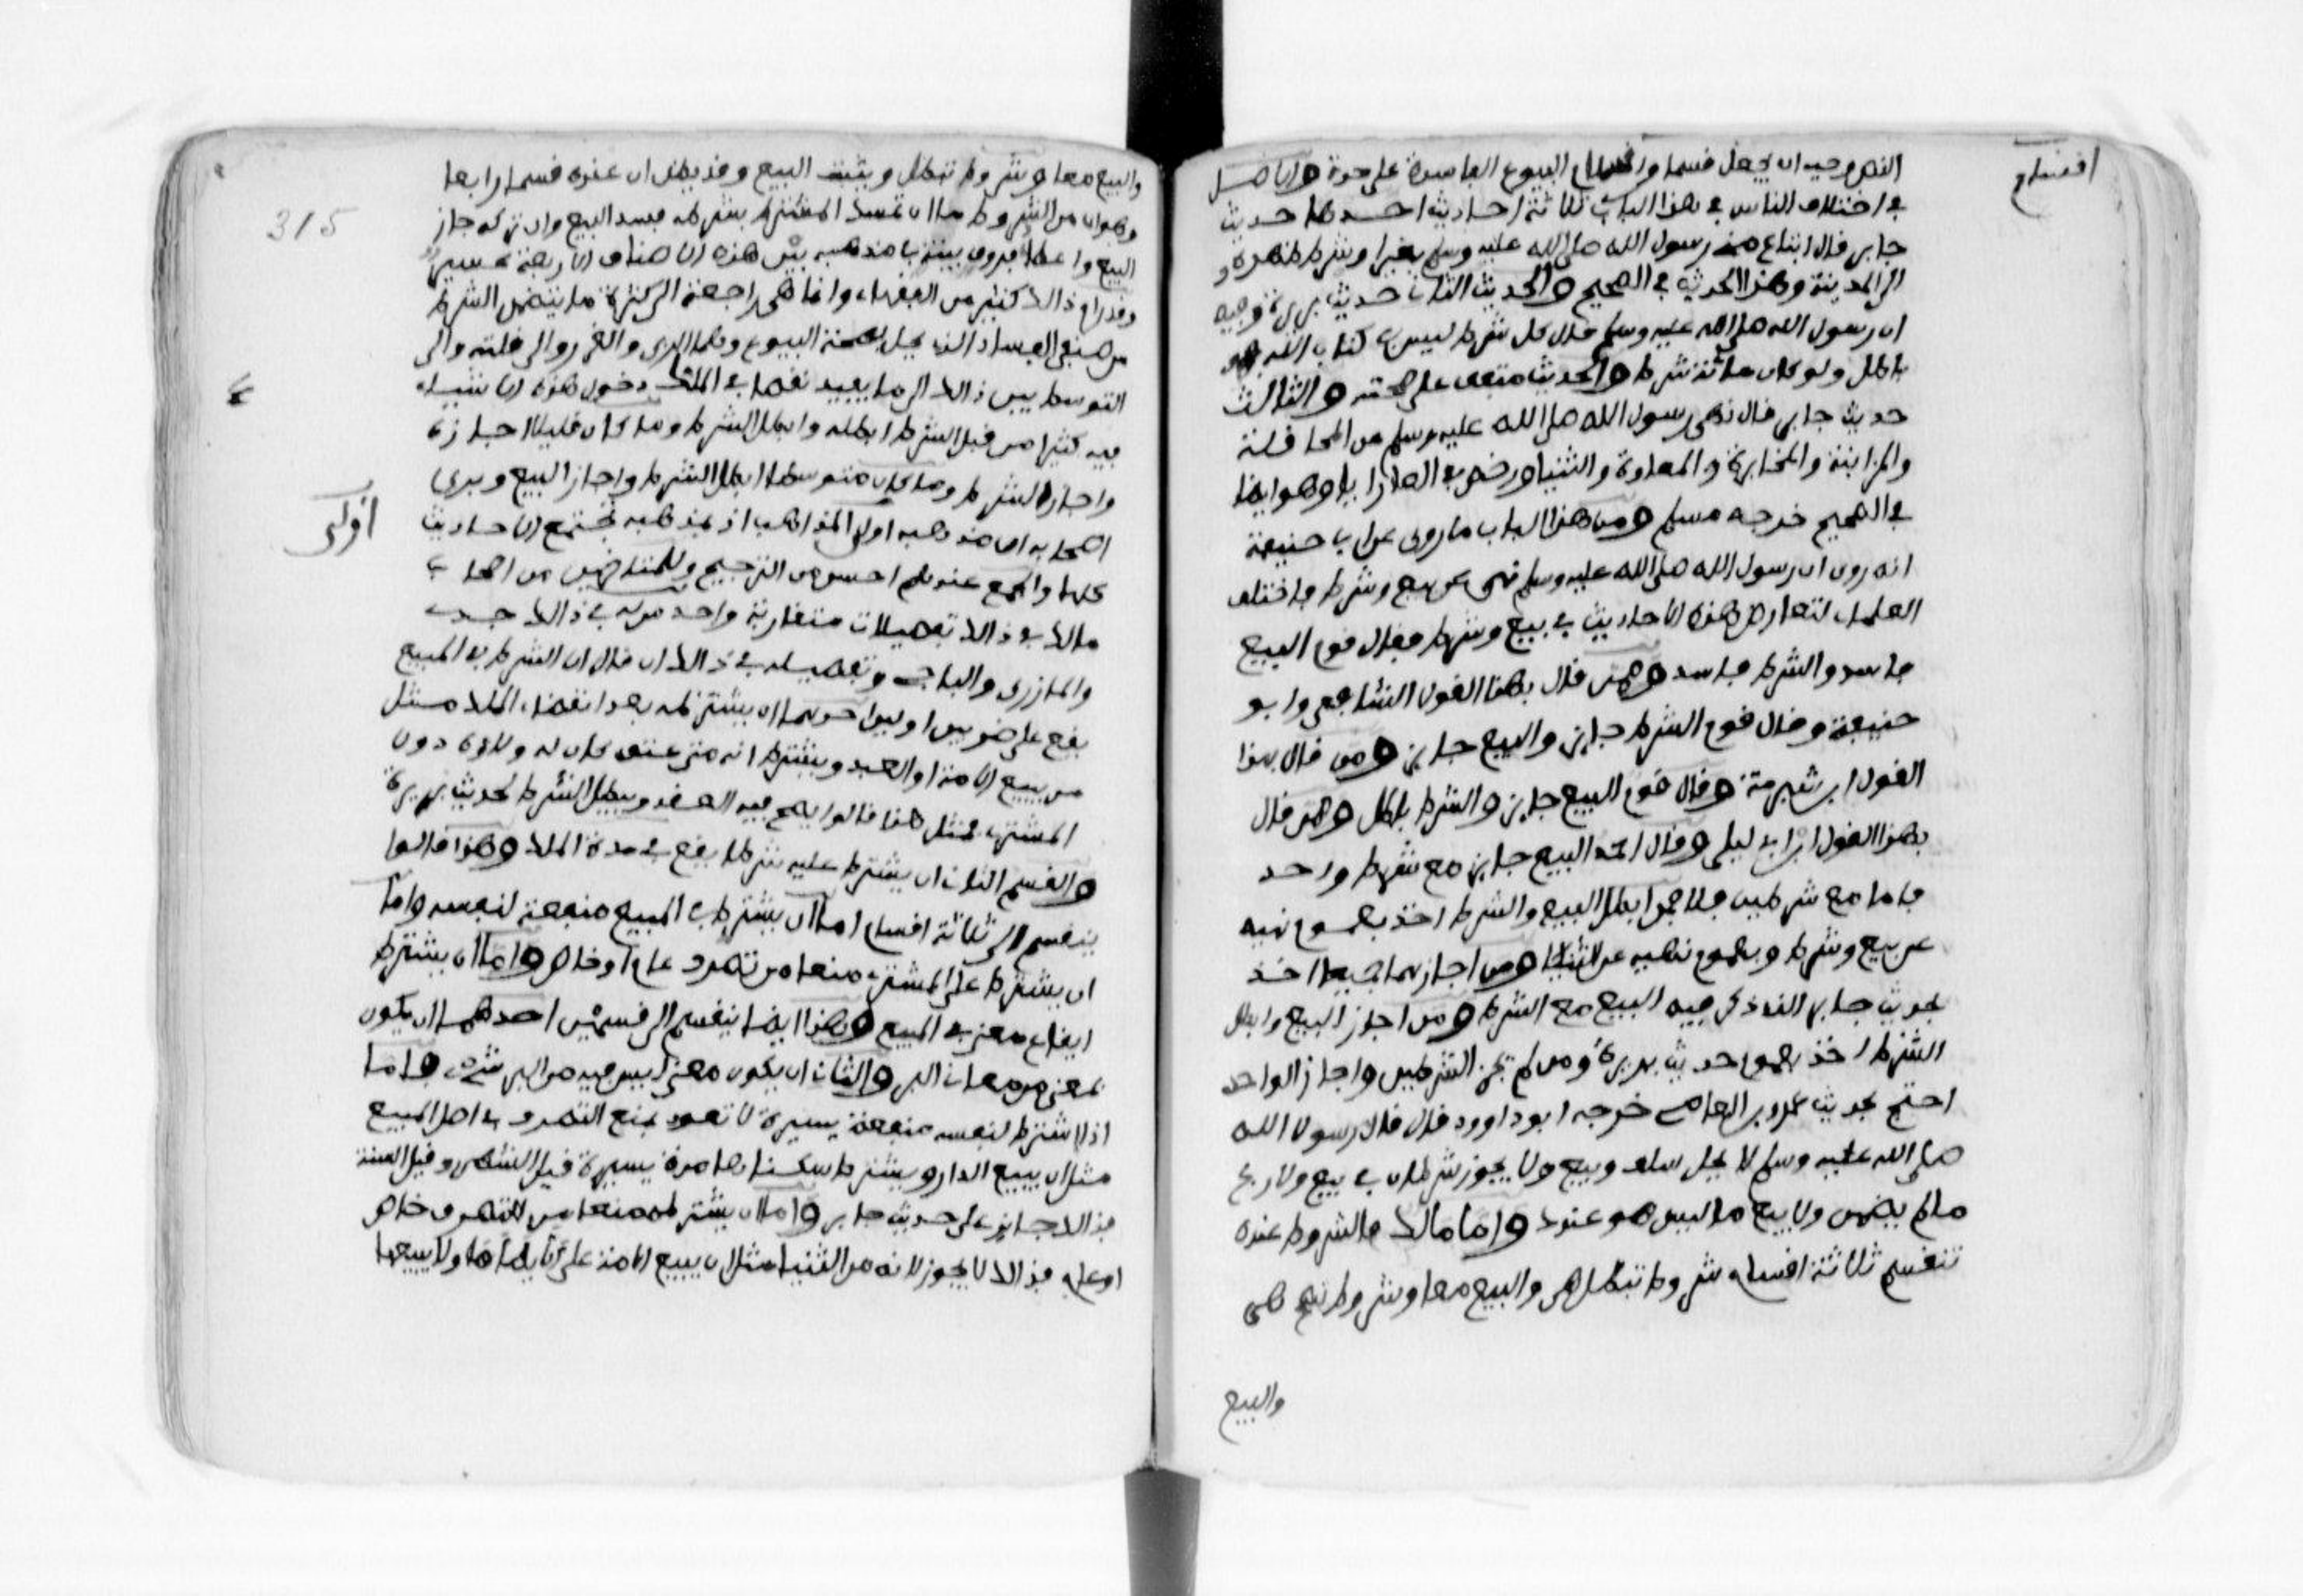 اقسام
النص وجب ان يجعل قسما من اقسام البيوع الفاسدة على حدة والاصل
في اختلاف الناس في هذا الباب ثلاثة احاديث احدها حديث
جابر قال ابتاع مني رسول الله صلى الله عليه وسلم بعيرا وشرط ظهره
الى المدينة وهذا الحديث في الصحيح والحديث الثاني حديث بريرة وفيه
ان رسول الله صلى الله عليه وسلم قال كل شرط ليس في كتاب الله فهو
باطل ولو كان مائة شرط والحديث متفق على صحته والثالث
حديث جابر قال نهى رسول الله صلى الله عليه وسلم عن المحاقلة
والمزابنة والمخابرة والمعاومة والثنيا ورخص في العرايا وهو ايضا
في الصحيح خرجه مسلم ومن هذا الباب ما روي عن ابي حنيفة
انه روى ان رسول الله صلى الله عليه وسلم نهى عن بيع وشرط فاختلف
العلماء لتعارض هذه الاحاديث في بيع وشرط فقال قوم البيع
فاسد والشرط فاسد وممن قال بهذا القول الشافعي وابو
حنيفة وقال قوم الشرط جايز والبيع جايز وممن قال بهذا
القول ابن شبرمة وقال قوم البيع جايز والشرط باطل وممن قال
بهذا القول ابن ابي ليلى وقال احمد البيع جايز مع شرط واحد
فاما مع شرطين فلا فمن ابطل البيع والشرط اخذ بعموم نهيه
عن بيع وشرط وبعموم نهيه عن الثنيا ومن اجازهما جميعا اخذ
بحديث جابر الذي ذكر فيه البيع مع الشرط ومن اجاز البيع وابطل
الشرط اخذ بعموم حديث بريرة ومن لم يجز الشرطين واجاز الواحد
احتج بحديث عمرو بن العاصي خرجه ابو داوود قال قال رسول الله
صلى الله عليه وسلم لا يحل سلف وبيع ولا يجوز شرطان في بيع ولا ربح
ما لم يضمن ولا بيع ما ليس هو عندك واما مالك فالشروط عنده
تنقسم ثلاثة اقسام شروط تبطل هي والبيع معا وشروط تصح هي
والبيع
والبيع معا وشروط تبطل ويثبت البيع وقد يظن ان عنده قسما رابعا
وهو ان من الشروط ما ان تمسك المشترط بشرطه فسد البيع وان تركه جاز
البيع واعطاء فروق بينة في مذهبه بين هذه الاصناف الاربعة عسير
وقد رام ذالك كثير من الفقهاء وانما هي راجعة الى كثرة ما يتضمن الشرط
من صنفي الفساد الذي يحل بصحة البيوع وهما الربى والغرر والى قلته والى
التوسط بين ذالك الى ما يفيد نقصا في الملك دخول هذه الاشياء
فيه كثيرا من قبل الشرط ابطله وابطل الشرط وما كان قليلا اجازه
واجاز الشرط وما كان متوسطا ابطل الشرط واجاز البيع ويرى
اصحابه ان مذهبه اولى المذاهب اذ بمذهبه تجتمع الاحاديث
اولى
كلها والجمع عندهم احسن من الترجيح وللمتاخرين من اصحاب
مالك في ذالك تفصيلات متقاربة واحد من له في ذالك جدي
والمازري والباجي وتفصيله في ذالك ان قال ان الشرط في المبيع
يقع على ضربين اولين احدهما ان يشترطه بعد انقضاء الملك مثل
من يبيع الامة او العبد ويشترط انه متى عتق كان له ولاؤه دون
المشتري فمثل هذا قالوا يصح فيه العقد ويبطل الشرط لحديث بريرة
والقسم الثاني ان يشترط عليه شرطا يقع في مدة الملك وهذا قالوا
ينقسم الى ثلاثة اقسام اما ان يشترط في المبيع منفعة لنفسه واما
ان يشترط على المشتري منعا من تصرف عام او خاص واما ان يشترط
ايقاع معنى في المبيع وهذا ايضا ينقسم الى قسمين احدهما ان يكون
معنى من معاني البر والثاني ان يكون معنى ليس فيه من البر شيء فاما
اذا اشترط لنفسه منفعة يسيرة لا تعود بمنع التصرف في اصل المبيع
مثل ان يبيع الدار ويشترط سكناها مدة يسيرة قيل الشهر وقيل السنة
فذالك جايز على حديث جابر واما ان يشترط منعا من التصرف خاص
او عام فذالك لا يجوز لانه من الثنيا مثل ان يبيع الامة على ان لا يطاها ولا يبيعها
315